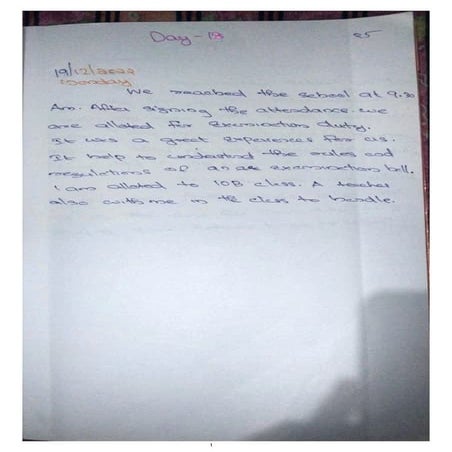 Day - 19
25
19/12/2022
Monday
We reached the school at 9.30
Am. After signing the attendance. we
are alloted for Examination duty.
It was a great experiences for us.
It help to understand the rules and
regulations of an examination hall.
I am alloted to 10B class. A teacher
also with me in the class to handle.
1